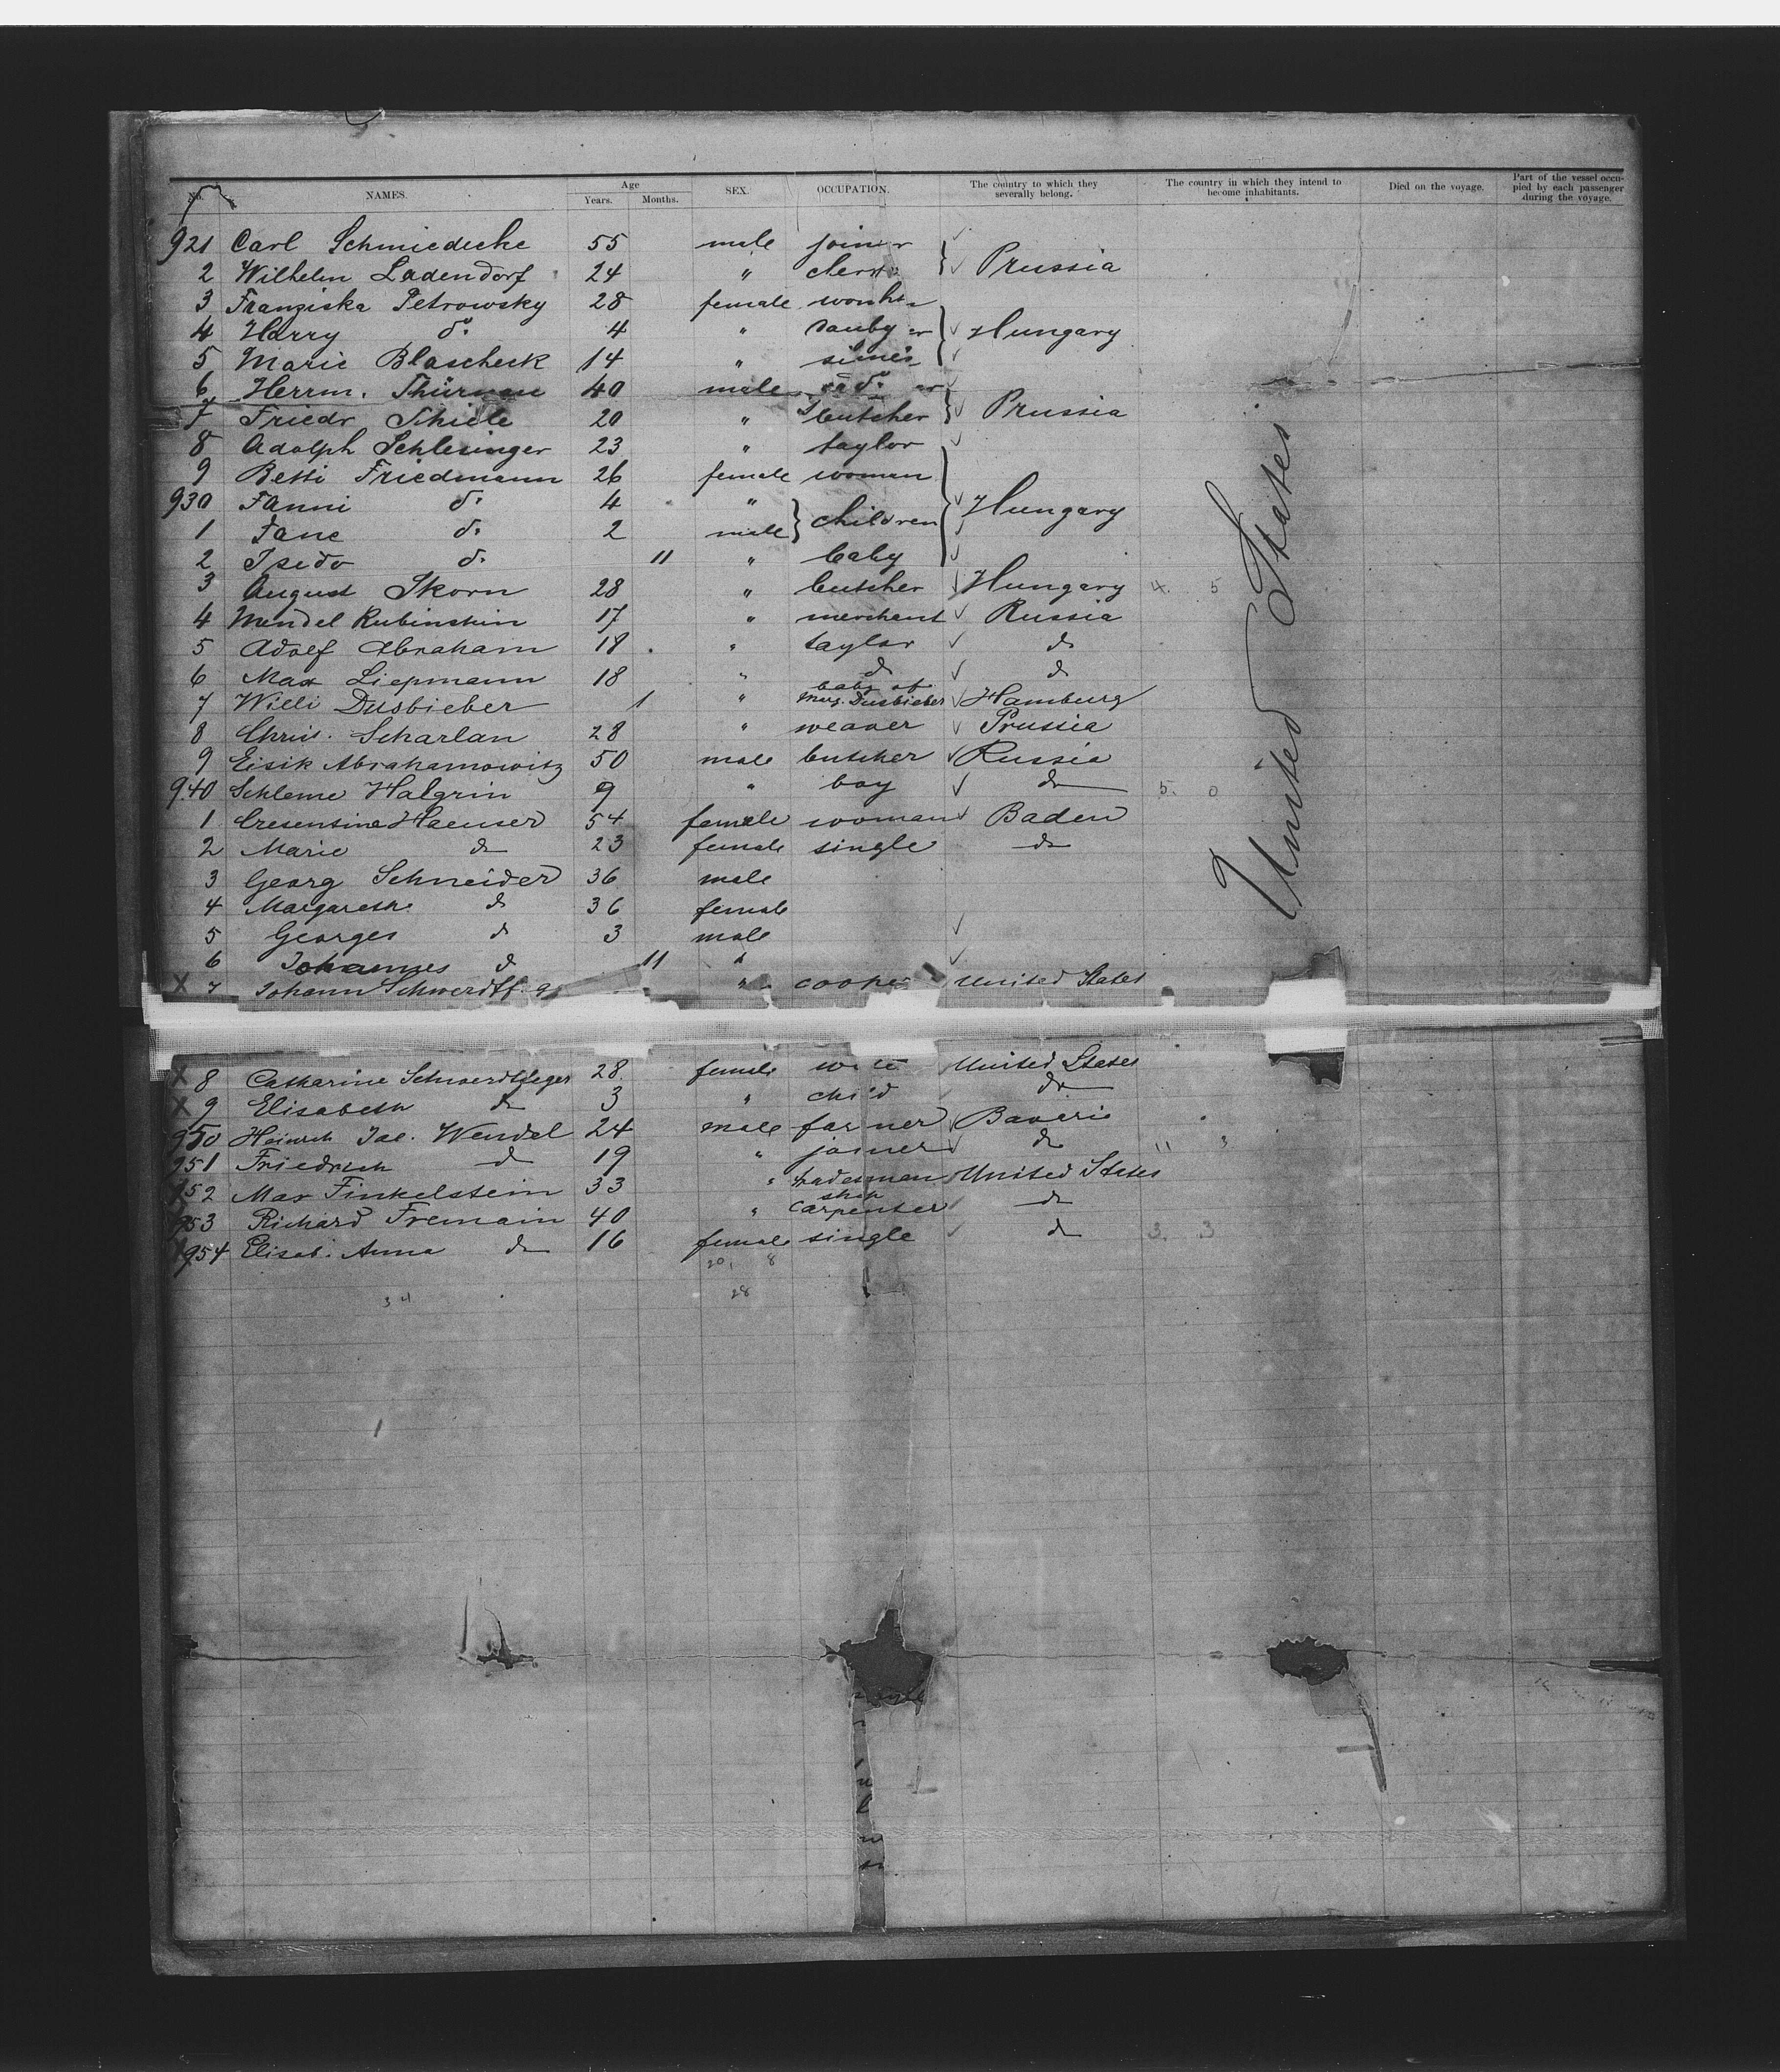 No. NAMES. Age Years. Months. SEX. OCCUPATION. The country to which they severally belong. The country in which they intend to become inhabitants. Died on the voyage. Part of the vessel occupied by each passenger during the voyage.
921 Carl Schmiedecke 55 male joiner
2 Wilhelm Ladendorf 24 " Prussia
3 Franziska Petrowsky 28 female
4 Harry do. 4 " Hungary
5 Marie Blascheck 14 "
6 Herrm. 40 male do.
7 Friedr Thiele 20 " butcher Prussia
8 Adolph Schlesinger 23 " taylor
9 Betti Friedmann 26 female woman
930 Fanni do. 4 " children Hungary
1 Jane do. 2 male
2 Isido do. 11 " baby
3 August Skorn 28 " butcher Hungary 4. 5
4 Mendel Rubinstein 17 " merchant Russia
5 Adolf Abraham 18 " taylor do
6 Max Liepmann 18 " do do
7 Willi Dusbieber 1 " baby of Marg. Dusbieber Hamburg
8 Chris. Scharlan 28 " weaver Prussia
9 Eisik Abrahamowitz 50 male butcher Russia
940 Schleme Halgrin 9 " boy do 5. 0
1 Cresensine Haenser 54 female woman Baden
2 Marie do 23 female single do
3 Georg Schneider 36 male
4 Margareth do 36 female
5 Georges do 3 male
6 Johannes do 11 "
X 7 Johann " cooper United States
United States
X 8 Catharine Schwerdtfeger 28 female United States
X 9 Elisabeth do 3 " child do
950 Heinrich Jac. Wendel 24 male farmer Bavaria
951 Friedrich do 19 " joiner do 11 3
952 Max Finkelstein 33 " tradesman United States
953 Richard Fremain 40 " ship carpenter do
954 Elisab. Anna do 16 female single do 3. 3
20, 8
34 28